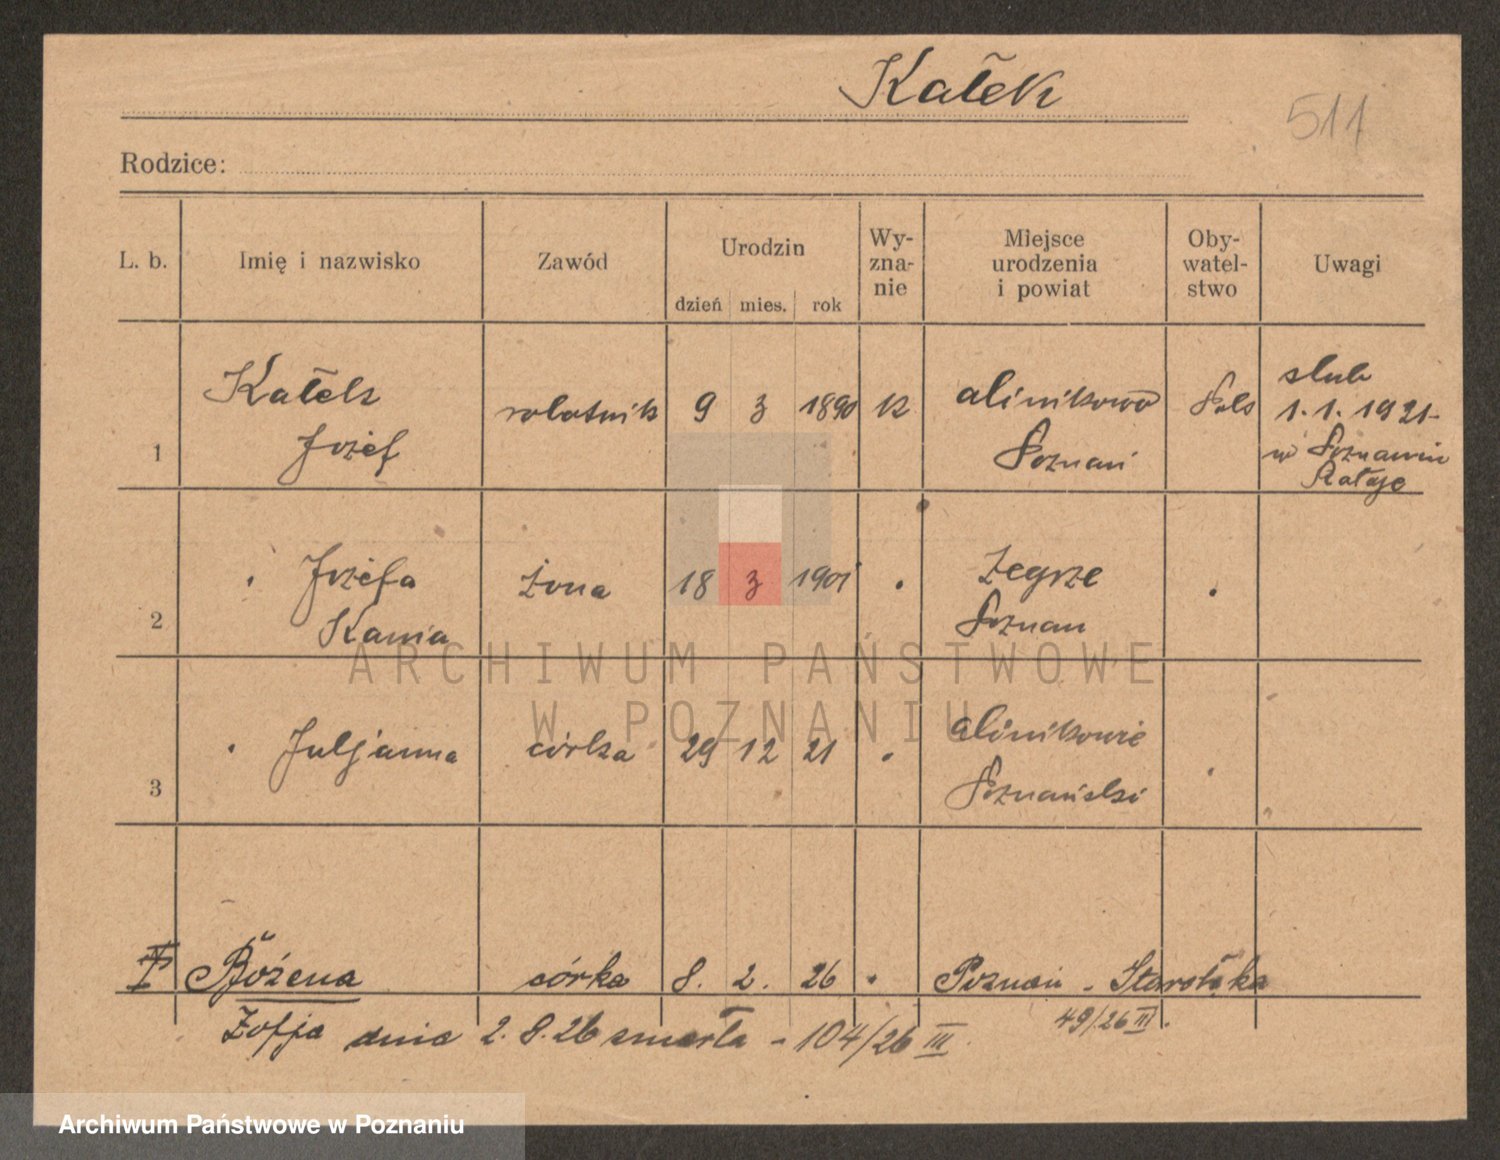 Kałek
511
Rodzice:
L. b. Imię i nazwisko Zawód Urodzin dzień mies. rok Wy-zna-nie Miejsce urodzenia i powiat Oby-watel-stwo Uwagi
1 Kałek Józef robotnik 9 3 1890 k Poznań Pols slub 1.1.1921 w Poznaniu Rataje
2 " Józefa Kania żona 18 3 1901 " Żegrze Poznan "
3 " Juljanna córka 29 12 21 " Poznański "
Bożena córka 8. 2. 26 " Poznań - Starołęka
49/26 III.
Zofja dnia 2.8.26 zmarła - 104/26 III.
ARCHIWUM PAŃSTWOWE
W POZNANIU
Archiwum Państwowe w Poznaniu